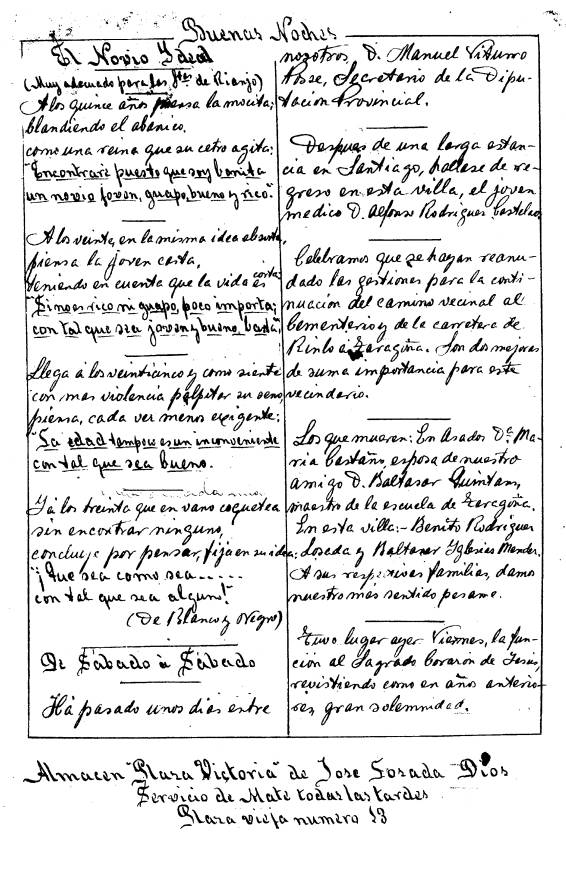 Buenas Noches
El Novio Ideal
(Muy adecuado para las Stas de Rianjo)
A los quince años piensa la mocita;
blandiendo el abanico,
como una reina que su cetro agita:
"Encontraré puesto que soy bonita
un novio joven, guapo, bueno y rico".
A los veinte, en la misma idea absorta,
piensa la joven casta,
teniendo en cuenta que la vida es corta:
"Si no es rico ni guapo, poco importa;
con tal que sea joven y bueno, basta"
Llega á los veinticinco y como siente
con mas violencia palpitar su seno,
piensa, cada vez menos exigente:
"La edad tampoco es un inconveniente
con tal que sea bueno.
Yá los treinta que en vano coquetea
sin encontrar ninguno,
concluye por pensar, fija en su idea:
"¡Que sea como sea.....
con tal que sea alguno!"
(De Blanco y Negro)
De Sábado á Sábado
Há pasado unos dias entre
nosotros, D. Manuel Viturro
Posse, Secretario de la Dipu-
tacion Provincial.
Despues de una larga estan-
cia en Santiago, hallase de re-
greso en esta villa, el joven
medico D. Alfonso Rodriguez Castelao,
Celebramos que se hayan reanu-
dado las gestiones para la conti-
nuación del camino vecinal al
Cementerio y de la carretera de
Rinlo a Taragoña. Son dos mejoras
de suma importancia para este
vecindario.
Los que mueren: En Asados Dª Ma-
ria Castaño, esposa de nuestro
amigo D. Baltasar Quintans,
maestro de la escuela de Taragoña.
En esta villa:- Benito Rodriguez
Losada y Baltasar Iglesias Mendez.
A sus respectivas familias, damos
nuestro mas sentido pesame.
Tuvo lugar ayer Viernes, la fun-
ción al Sagrado Corazón de Jesús,
revistiendo como en años anterio-
res, gran solemnidad.
Almacen "Plaza Victoria" de Jose Losada Dios
Servicio de Mate todas las tardes
Plaza vieja numero 13